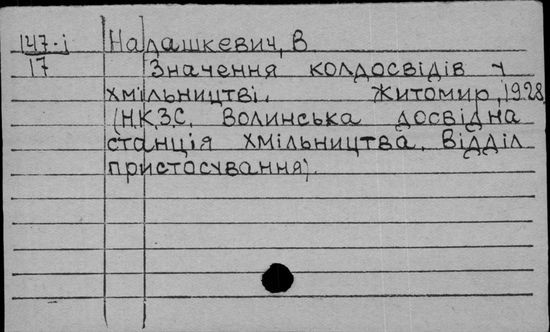 147-і Надашкевич, В.
17 Значення колдосвідів у
хмільництві. Житомир, 1928,
(Н.К.З.С. Волинська досвідна
станція хмільництва. Відділ
пристосування).